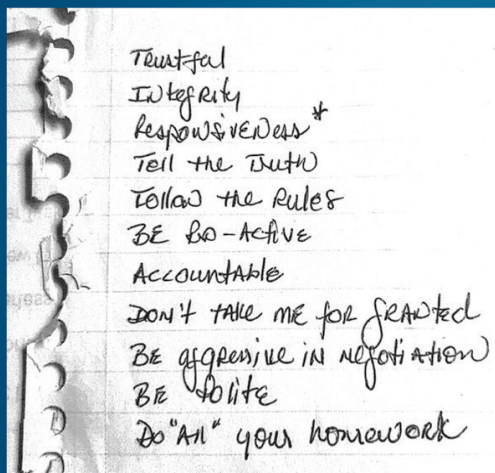 Trustful
Integrity
Responsiveness*
Tell the Truth
Follow the Rules
BE PRO-Active
Accountable
DON'T TAKE ME FOR GRANTED
BE aggressive in negotiation
BE Polite
Do "All" your homework